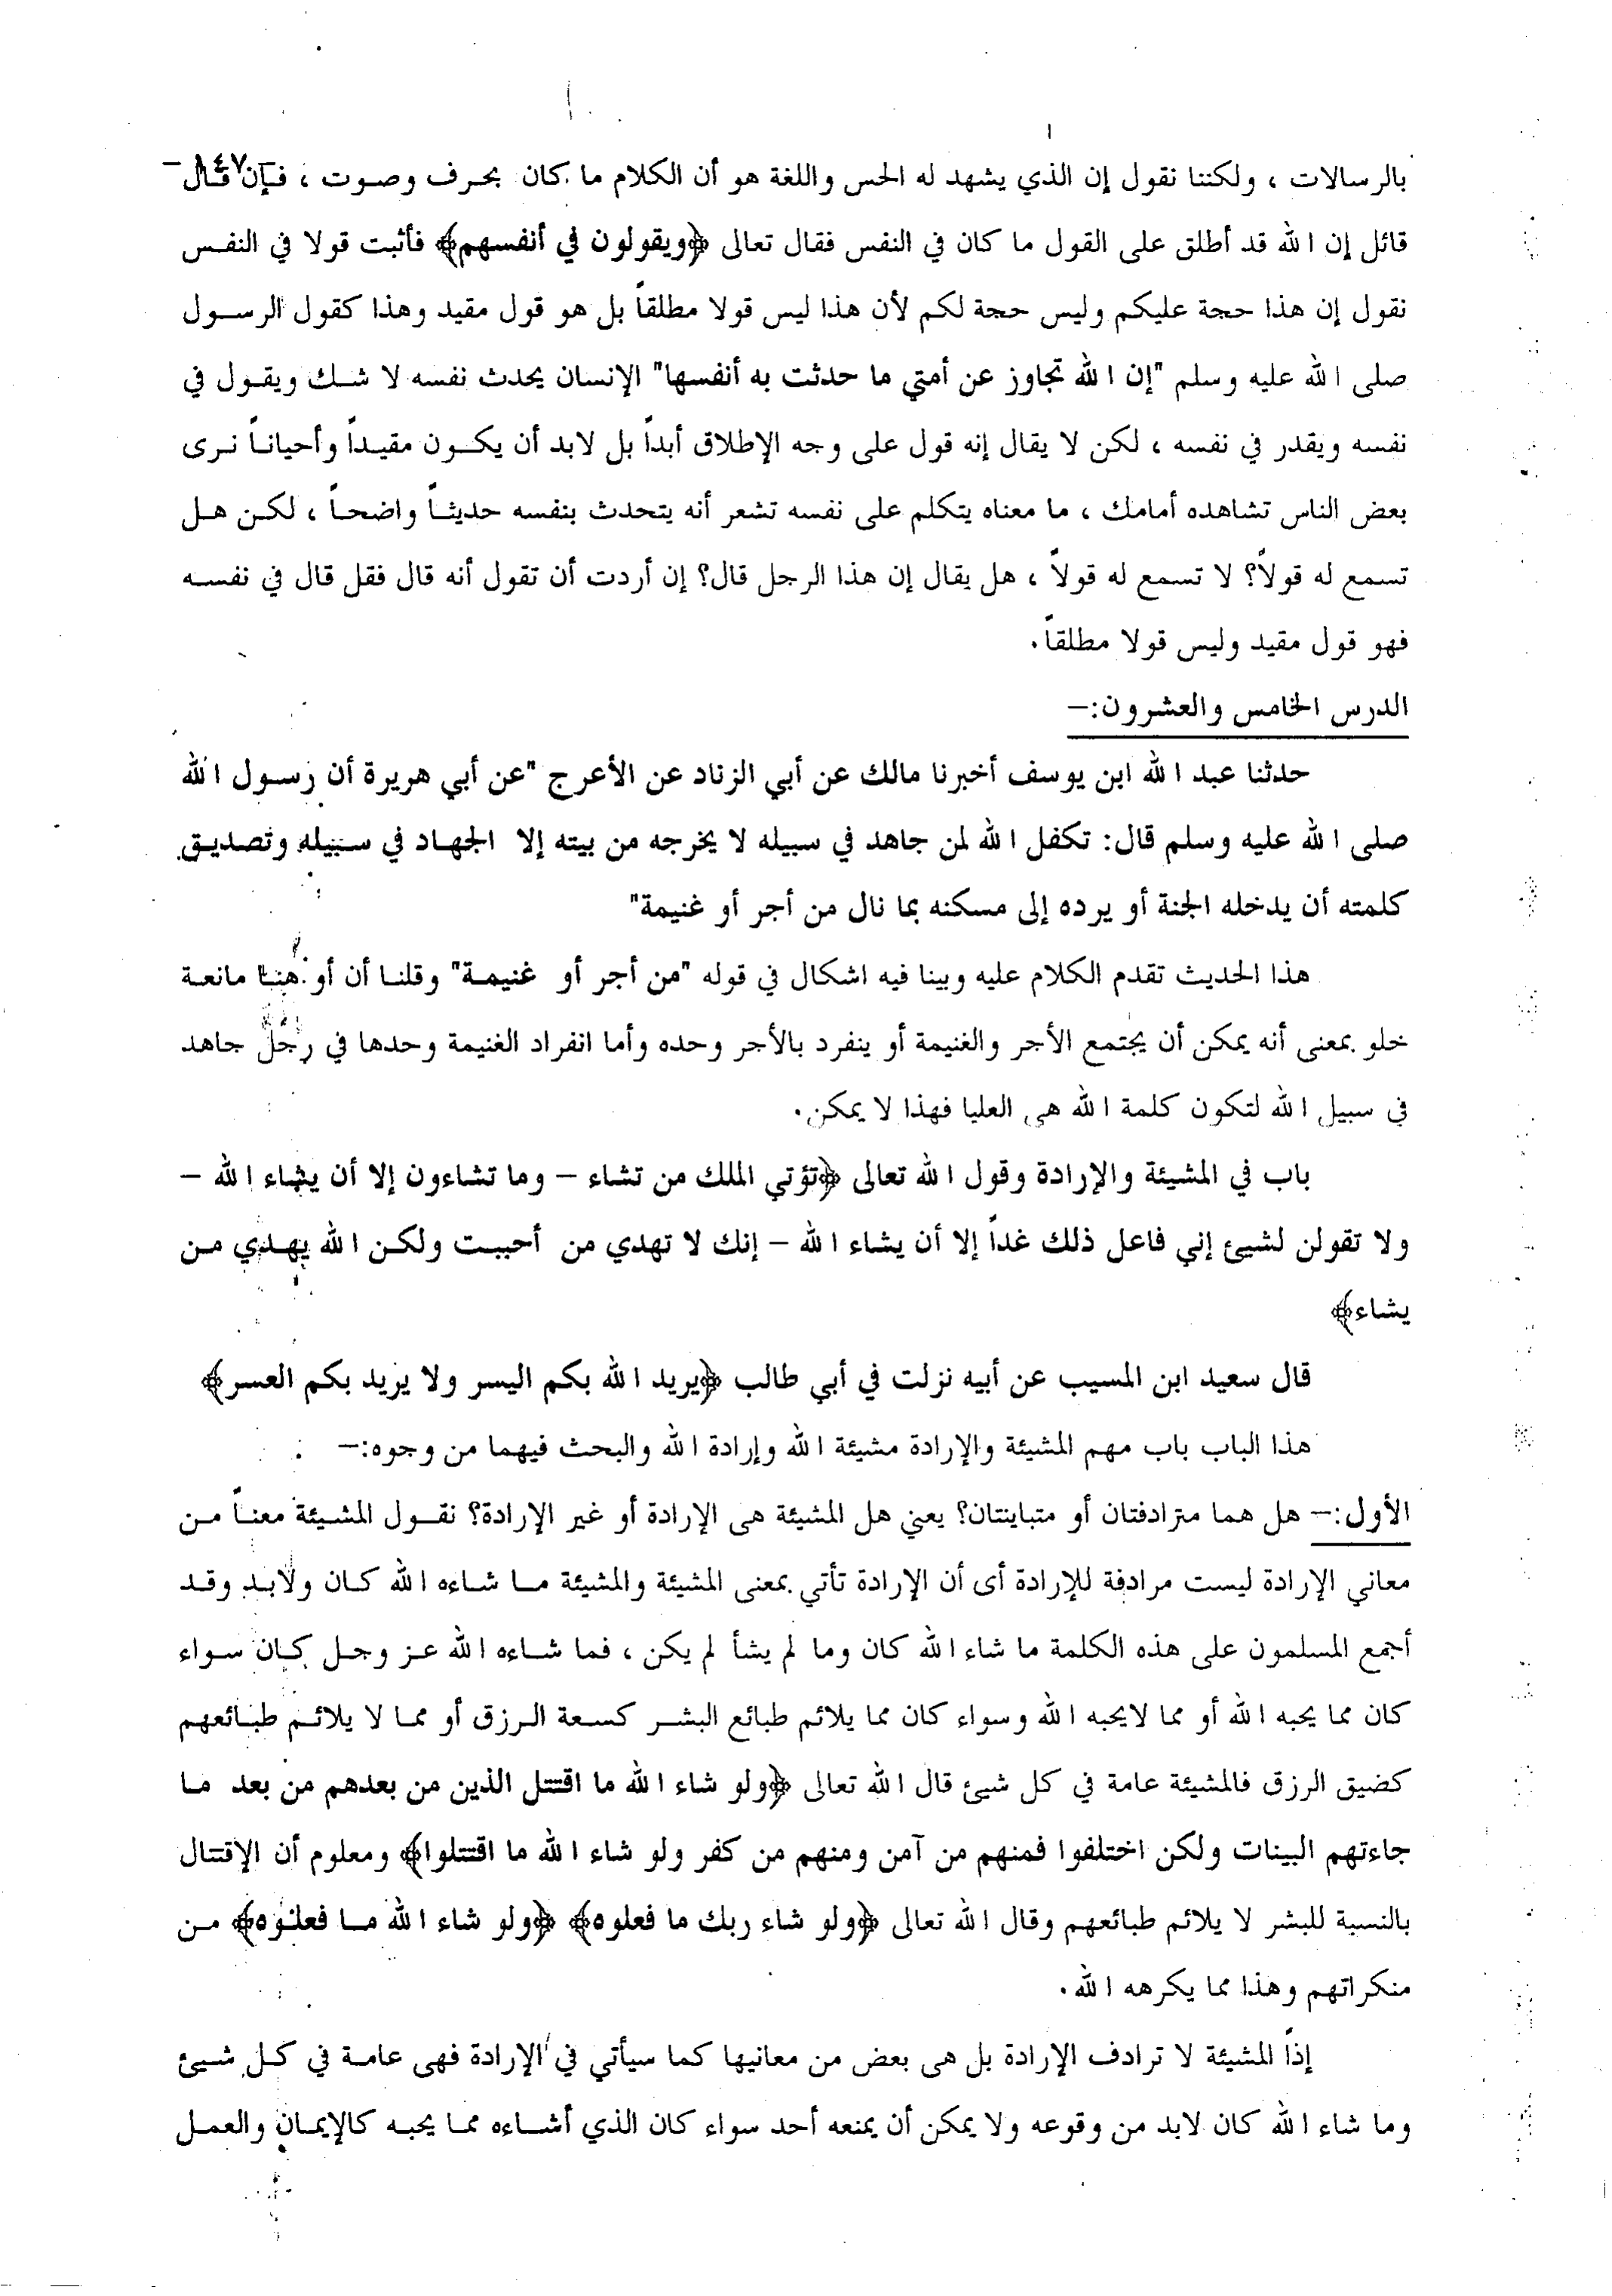 بالرسالات ، ولكننا نقول إن الذي يشهد له الحس واللغة هو أن الكلام ما كان بحرف وصوت ، فإن قال
قائل إن الله قد أطلق على القول ما كان في النفس فقال تعالى ﴿ويقولون في أنفسهم﴾ فأثبت قولا في النفس
نقول إن هذا حجة عليكم وليس حجة لكم لأن هذا ليس قولا مطلقاً بل هو قول مقيد وهذا كقول الرسول
صلى الله عليه وسلم "إن الله تجاوز عن أمتي ما حدثت به أنفسها" الإنسان يحدث نفسه لا شك ويقول في
نفسه ويقدر في نفسه ، لكن لا يقال إنه قول على وجه الإطلاق أبداً بل لابد أن يكون مقيداً وأحياناً نرى
بعض الناس تشاهده أمامك ، ما معناه يتكلم على نفسه تشعر أنه يتحدث بنفسه حديثاً واضحاً ، لكن هل
تسمع له قولاً؟ لا تسمع له قولاً ، هل يقال إن هذا الرجل قال؟ إن أردت أن تقول أنه قال فقل قال في نفسه
فهو قول مقيد وليس قولا مطلقاً.
الدرس الخامس والعشرون:–
حدثنا عبد الله ابن يوسف أخبرنا مالك عن أبي الزناد عن الأعرج "عن أبي هريرة أن رسول الله
صلى الله عليه وسلم قال: تكفل الله لمن جاهد في سبيله لا يخرجه من بيته إلا الجهاد في سبيله وتصديق
كلمته أن يدخله الجنة أو يرده إلى مسكنه بما نال من أجر أو غنيمة"
هذا الحديث تقدم الكلام عليه وبينا فيه اشكال في قوله "من أجر أو غنيمة" وقلنا أن أو هنا مانعة
خلو بمعنى أنه يمكن أن يجتمع الأجر والغنيمة أو ينفرد بالأجر وحده وأما انفراد الغنيمة وحدها في رجل جاهد
في سبيل الله لتكون كلمة الله هى العليا فهذا لا يمكن.
باب في المشيئة والإرادة وقول الله تعالى ﴿تؤتي الملك من تشاء – وما تشاءون إلا أن يشاء الله –
ولا تقولن لشيئ إني فاعل ذلك غداً إلا أن يشاء الله – إنك لا تهدي من أحببت ولكن الله يهدي من
يشاء﴾
قال سعيد ابن المسيب عن أبيه نزلت في أبي طالب ﴿يريد الله بكم اليسر ولا يريد بكم العسر﴾
هذا الباب باب مهم المشيئة والإرادة مشيئة الله وإرادة الله والبحث فيهما من وجوه:–
الأول:– هل هما مترادفتان أو متباينتان؟ يعني هل المشيئة هى الإرادة أو غير الإرادة؟ نقول المشيئة معناً من
معاني الإرادة ليست مرادفة للإرادة أى أن الإرادة تأتي بمعنى المشيئة والمشيئة ما شاءه الله كان ولابد وقد
أجمع المسلمون على هذه الكلمة ما شاء الله كان وما لم يشأ لم يكن ، فما شاءه الله عز وجل كان سواء
كان مما يحبه الله أو مما لايحبه الله وسواء كان مما يلائم طبائع البشر كسعة الرزق أو مما لا يلائم طبائعهم
كضيق الرزق فالمشيئة عامة في كل شيئ قال الله تعالى ﴿ولو شاء الله ما اقتتل الذين من بعدهم من بعد ما
جاءتهم البينات ولكن اختلفوا فمنهم من آمن ومنهم من كفر ولو شاء الله ما اقتتلوا﴾ ومعلوم أن الإقتتال
بالنسبة للبشر لا يلائم طبائعهم وقال الله تعالى ﴿ولو شاء ربك ما فعلوه﴾ ﴿ولو شاء الله ما فعلوه﴾ من
منكراتهم وهذا مما يكرهه الله.
إذاً المشيئة لا ترادف الإرادة بل هى بعض من معانيها كما سيأتي في الإرادة فهى عامة في كل شيئ
وما شاء الله كان لابد من وقوعه ولا يمكن أن يمنعه أحد سواء كان الذي أشاءه مما يحبه كالإيمان والعمل